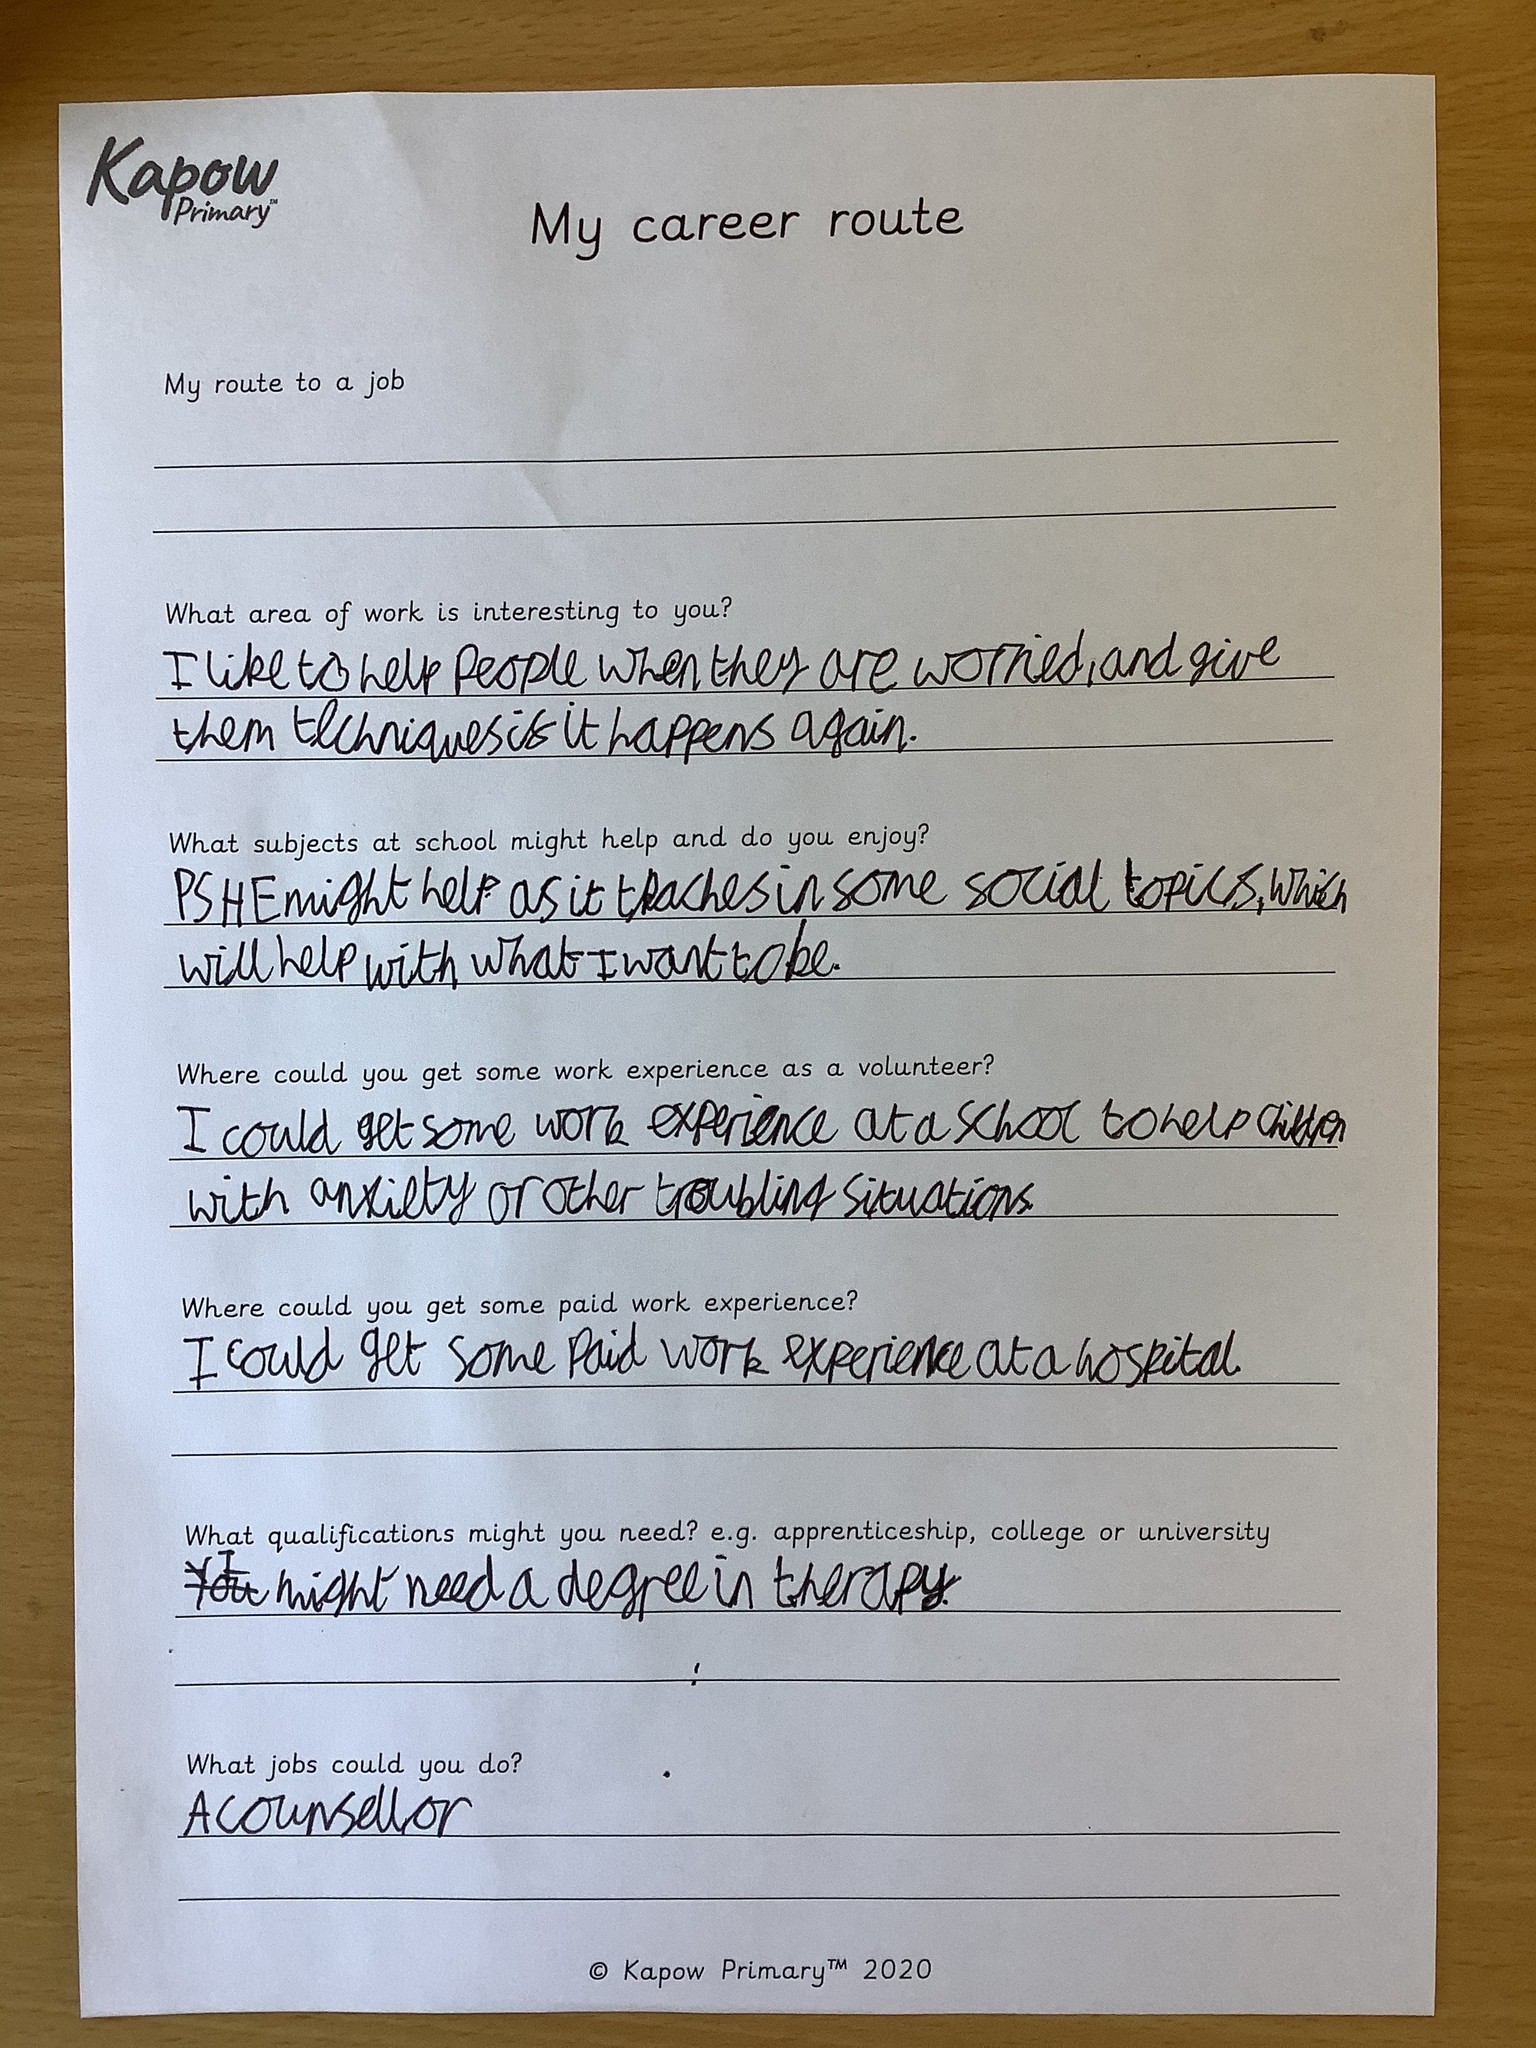 Kapow
Primary™
My career route
My route to a job
What area of work is interesting to you?
I like to help people when they are worried, and give
them techniques if it happens again.
What subjects at school might help and do you enjoy?
PSHE might help as it teaches in some social topics, which
will help with what I want to be.
Where could you get some work experience as a volunteer?
I could get some work experience at a school to help children
with anxiety or other troubling situations.
Where could you get some paid work experience?
I could get some paid work experience at a hospital.
What qualifications might you need? e.g. apprenticeship, college or university
I
You might need a degree in therapy.
What jobs could you do?
A counsellor
© Kapow Primary™ 2020